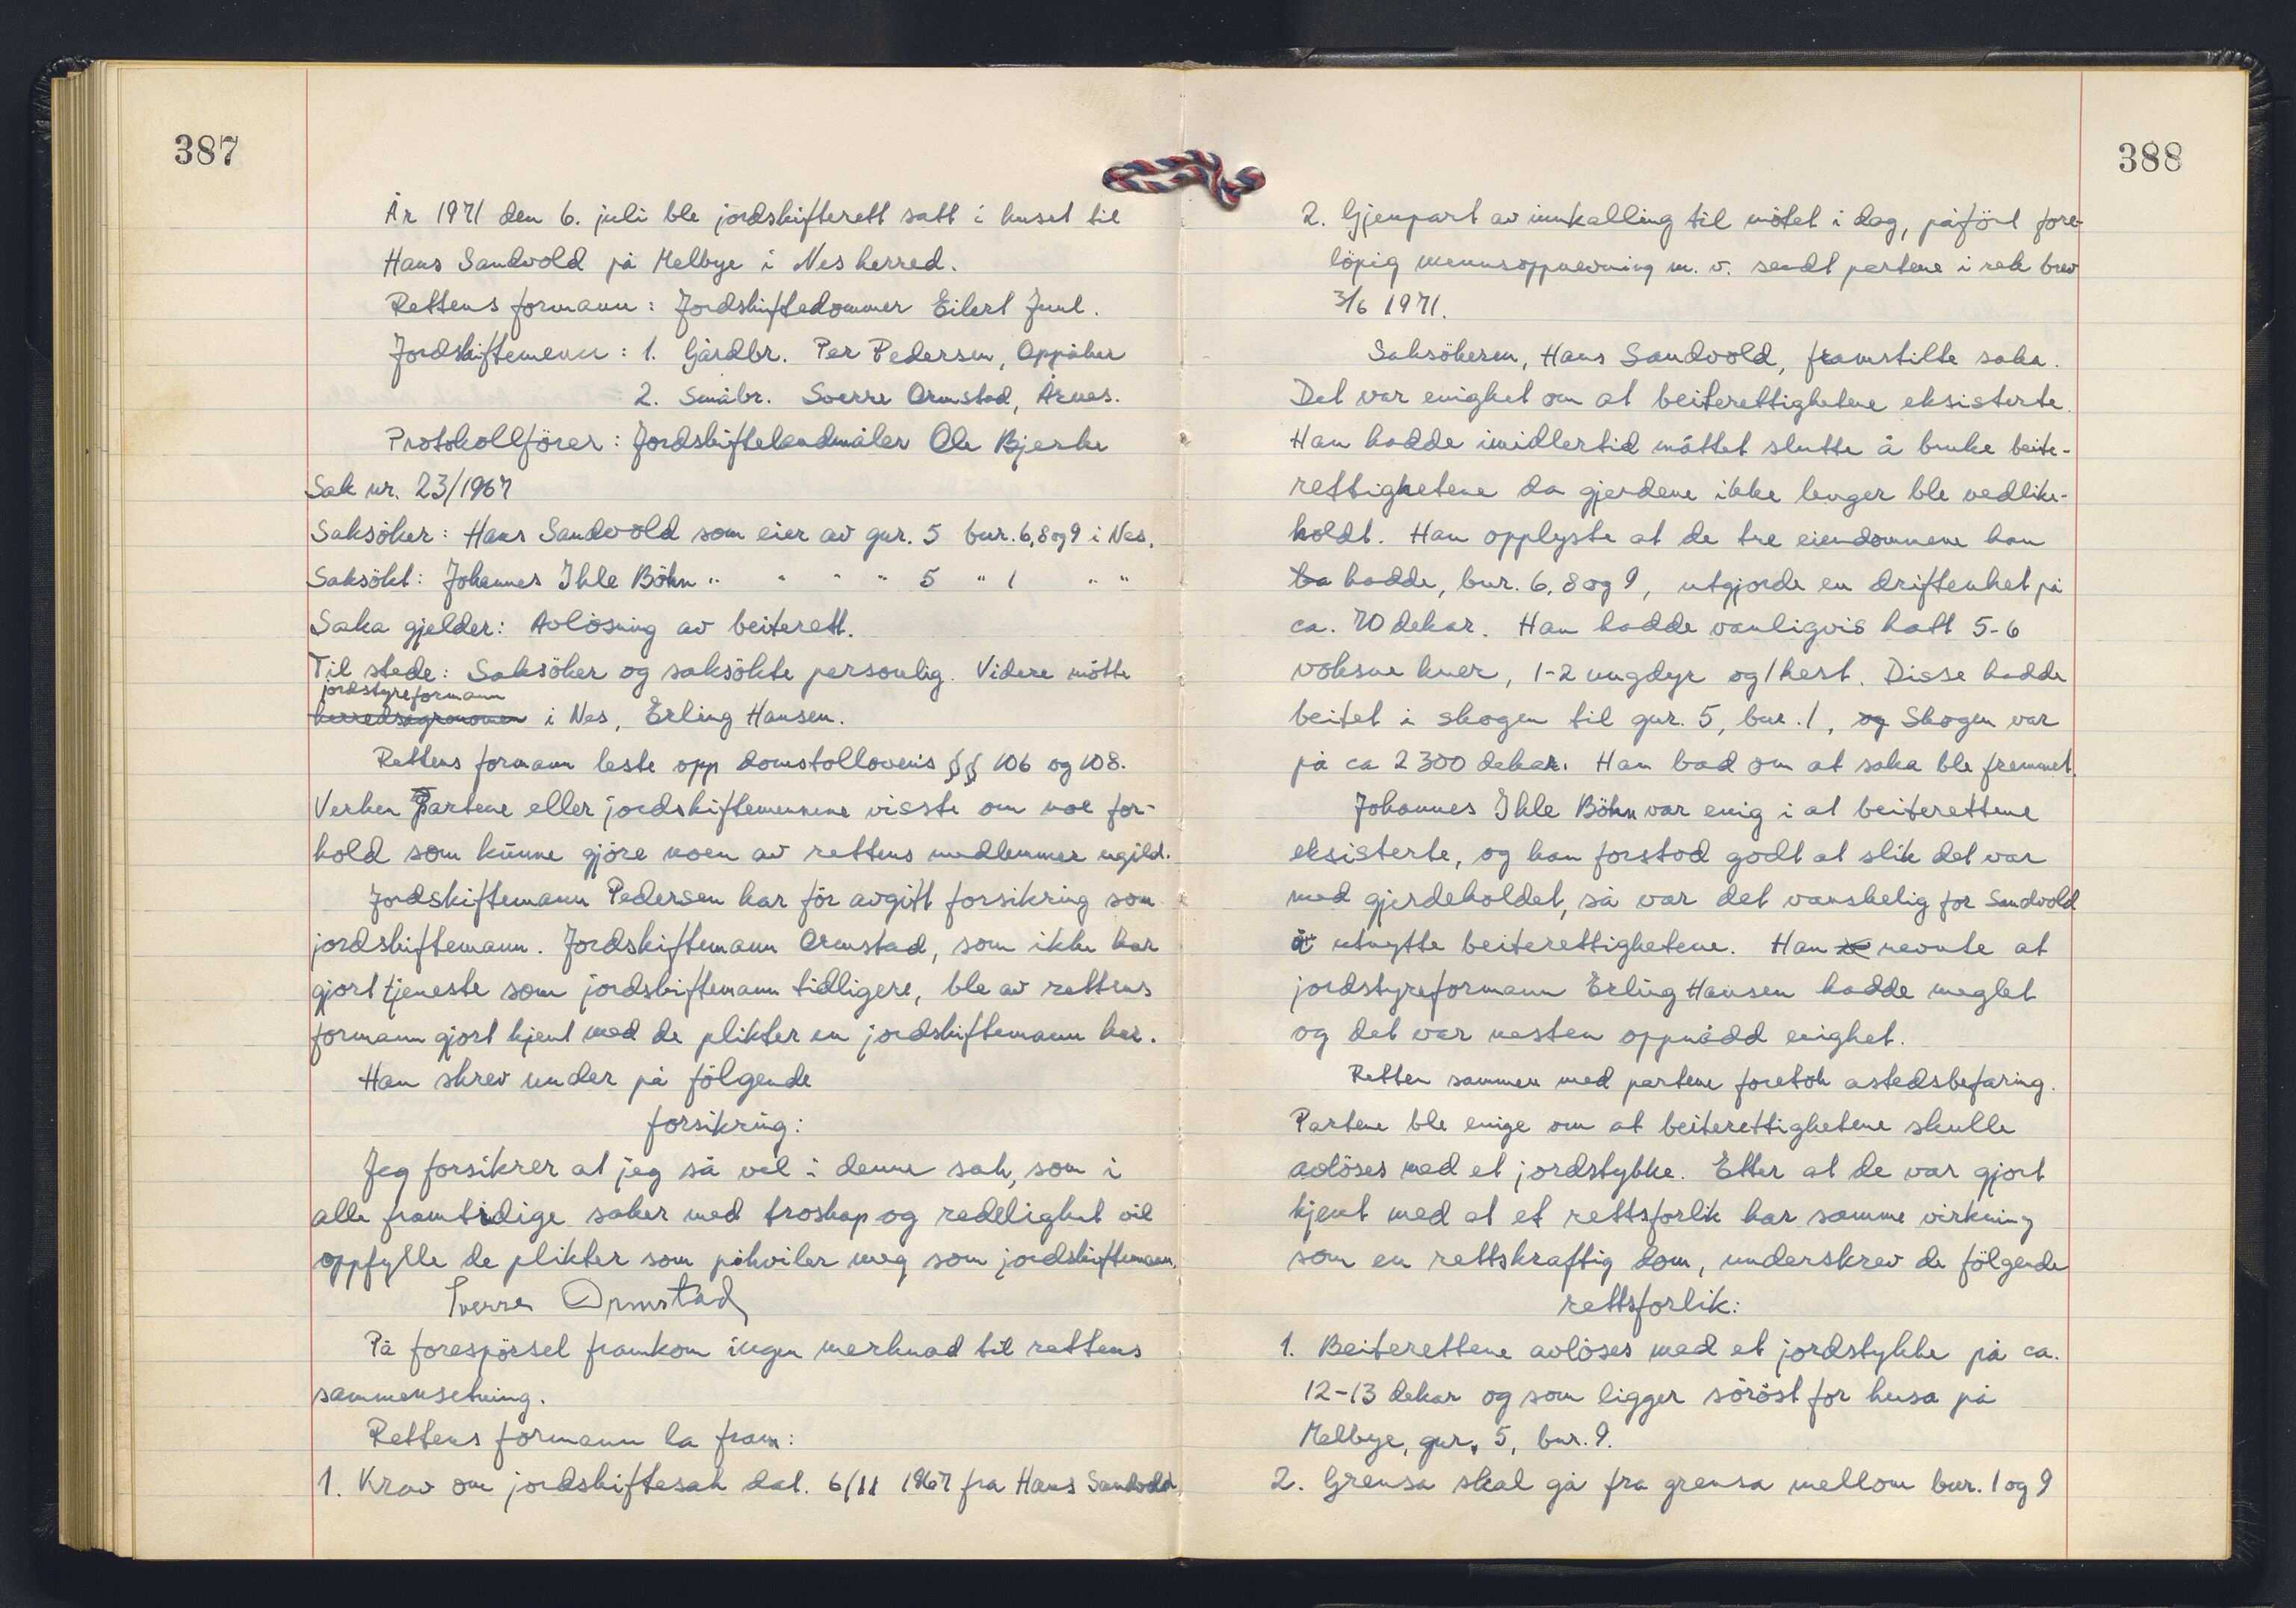 387
År 1971 den 6. juli ble jordskifterett satt i huset til
Hans Sandvold på Melbye i Nes herred.
Rettens formann: Jordskiftedommer Eilert Juul.
Jordskiftemenn: 1. Gårdbr. Per Pedersen, Oppåker
2. Småbr. Sverre Ormstad, Årnes.
Protokollförer: Jordskiftelandmåler Ole Bjerke
Sak nr. 23/1967
Saksöker: Hans Sandvold som eier av gnr. 5 bnr. 6,8 og 9 i Nes.
Saksökt: Johannes Ihle Böhn " " " " 5 " 1 " "
Saka gjelder: Avlösning av beiterett.
Til stede: Saksöker og saksökte personlig. Videre mötte
jordstyreformann
herredsagronomen i Nes, Erling Hansen.
Rettens formann leste opp domstollovens §§ 106 og 108.
Verken Partene eller jordskiftemennene visste om noe for-
hold som kunne gjöre noen av rettens medlemmer ugild.
Jordskiftemann Pedersen har för avgitt forsikring som
jordskiftemann. Jordskiftemann Ormstad, som ikke har
gjort tjeneste som jordskiftemann tidligere, ble av rettens
formann gjort kjent med de plikter en jordskiftemann har.
Han skrev under på fölgende
forsikring:
Jeg forsikrer at jeg så vel i denne sak, som i
alle framtidige saker med troskap og redelighet vil
oppfylle de plikter som påhviler meg som jordskiftemann.
Sverre Ormstad
På forespörsel framkom ingen merknad til rettens
sammensetning.
Rettens formann la fram:
1. Krav om jordskiftesak dat. 6/11 1967 fra Hans Sandvold
388
2. Gjenpart av innkalling til mötet i dag, påfört fore-
löpig mennsoppnevning m. v. sendt partene i rek brev
3/6 1971.
Saksökeren, Hans Sandvold, framstilte saka.
Det var enighet om at beiterettighetene eksisterte.
Han hadde imidlertid måttet slutte å bruke beite-
rettighetene da gjerdene ikke lenger ble vedlike-
holdt. Han opplyste at de tre eiendommene han
ha hadde, bnr. 6, 8 og 9, utgjorde en driftenhet på
ca. 70 dekar. Han hadde vanligvis hatt 5-6
voksne kuer, 1-2 ungdyr og 1 hest. Disse hadde
beitet i skogen til gnr. 5, bnr. 1, og Skogen var
på ca 2300 dekar. Han bad om at saka ble fremmet.
Johannes Ihle Böhn var enig i at beiterettene
eksisterte, og han forstod godt at slik det var
med gjerdeholdet, så var det vanskelig for Sandvold
å utnytte beiterettighetene. Han nevnte at
jordstyreformann Erling Hansen hadde meglet
og det var nesten oppnådd enighet.
Retten sammen med partene foretok åstedsbefaring.
Partene ble enige om at beiterettighetene skulle
avlöses med et jordstykke. Etter at de var gjort
kjent med at et rettsforlik har samme virkning
som en rettskraftig dom, underskrev de fölgende
rettsforlik:
1. Beiterettene avlöses med et jordstykke på ca.
12-13 dekar og som ligger söröst for husa på
Melbye, gnr. 5, bnr. 9.
2. Grensa skal gå fra grensa mellom bnr. 1 og 9